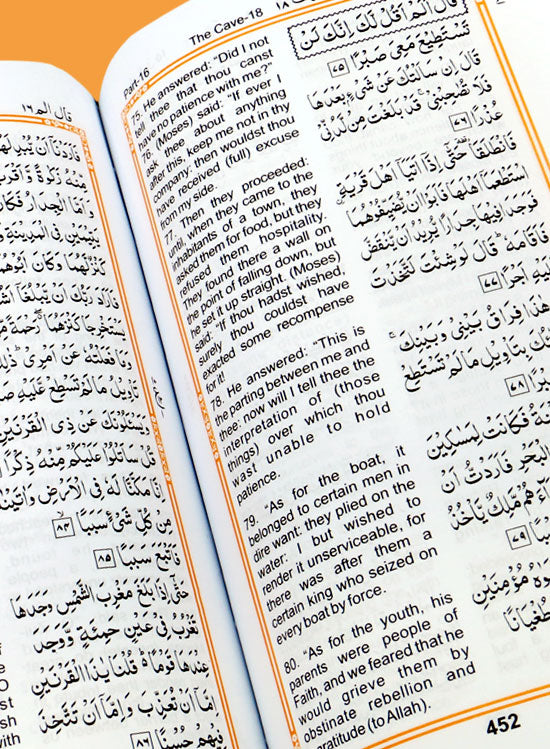 Part-16
The Cave-18
75. He answered: "Did I not
tell thee that thou canst
have no patience with me?"
76. (Moses) said: "If ever I
ask thee about anything
after this, keep me not in thy
company: then wouldst thou
have received (full) excuse
from my side.
77. Then they proceeded:
until, when they came to the
inhabitants of a town, they
asked them for food, but they
refused them hospitality.
They found there a wall on
the point of falling down, but
he set it up straight. (Moses)
said: "If thou hadst wished,
surely thou couldst have
exacted some recompense
for it!
78. He answered: "This is
the parting between me and
thee: now will I tell thee the
interpretation of (those
things) over which thou
wast unable to hold
patience.
79. "As for the boat, it
belonged to certain men in
dire want: they plied on the
water: I but wished to
render it unserviceable, for
there was after them a
certain king who seized on
every boat by force.
80. "As for the youth, his
parents were people of
Faith, and we feared that he
would grieve them by
obstinate rebellion and
gratitude (to Allah).
قَالَ اَلَمْ اَقُلْ لَّكَ اِنَّكَ لَنْ
تَسْتَطِيْعَ مَعِيَ صَبْرًا ٧٥
قَالَ اِنْ سَاَلْتُكَ عَنْ شَيْءٍ بَعْدَهَا
فَلَا تُصٰحِبْنِيْ قَدْ بَلَغْتَ مِنْ لَّدُنِّيْ
عُذْرًا ٧٦
فَانْطَلَقَا حَتّٰۤى اِذَاۤ اَتَيَاۤ اَهْلَ قَرْيَةِ
اسْتَطْعَمَاۤ اَهْلَهَا فَاَبَوْا اَنْ يُّضَيِّفُوْهُمَا
فَوَجَدَا فِيْهَا جِدَارًا يُّرِيْدُ اَنْ يَّنْقَضَّ
فَاَقَامَهٗ قَالَ لَوْ شِئْتَ لَتَّخَذْتَ
اَجْرًا ٧٧
هٰذَا فِرَاقُ بَيْنِيْ وَبَيْنِكَ
بِتَاْوِيْلِ مَا لَمْ تَسْتَطِعْ
٧٨
فَكَانَتْ لِمَسٰكِيْنَ
الْبَحْرِ فَاَرَدْتُّ اَنْ
مَّلِكٌ يَّاْخُذُ
٧٩
مُؤْمِنَيْنِ
طُغْيَانًا
452
قال الم ١٦
فَاَرَدْنَاۤ اَنْ يُّبْدِلَهُمَا
مِّنْهُ زَكٰوةً وَّاَقْرَبَ
وَاَمَّا الْجِدَارُ فَكَانَ
يَتِيْمَيْنِ فِى الْمَدِيْنَةِ
كَنْزٌ لَّهُمَا وَكَانَ اَبُوْهُمَا
فَاَرَادَ رَبُّكَ اَنْ يَّبْلُغَاۤ
يَسْتَخْرِجَا كَنْزَهُمَا رَحْمَةً
وَمَا فَعَلْتُهٗ عَنْ اَمْرِيْ ذٰلِكَ
تَاْوِيْلُ مَا لَمْ تَسْطِعْ عَّلَيْهِ
يَسْـَٔلُوْنَكَ عَنْ ذِى الْقَرْنَيْنِ
قُلْ سَاَتْلُوْا عَلَيْكُمْ مِّنْهُ ذِكْرًا
اِنَّا مَكَّنَّا لَهٗ فِى الْاَرْضِ وَاٰتَيْنٰهُ
مِنْ كُلِّ شَيْءٍ سَبَبًا ٨٤
فَاَتْبَعَ سَبَبًا ٨٥
حَتّٰۤى اِذَا بَلَغَ مَغْرِبَ الشَّمْسِ وَجَدَهَا
تَغْرُبُ فِيْ عَيْنٍ حَمِئَةٍ وَّوَجَدَ
عِنْدَهَا قَوْمًا قُلْنَا يٰذَا الْقَرْنَيْنِ
اِمَّاۤ اَنْ تُعَذِّبَ وَاِمَّاۤ اَنْ تَتَّخِذَ
فِيْهِمْ حُسْنًا ٨٦